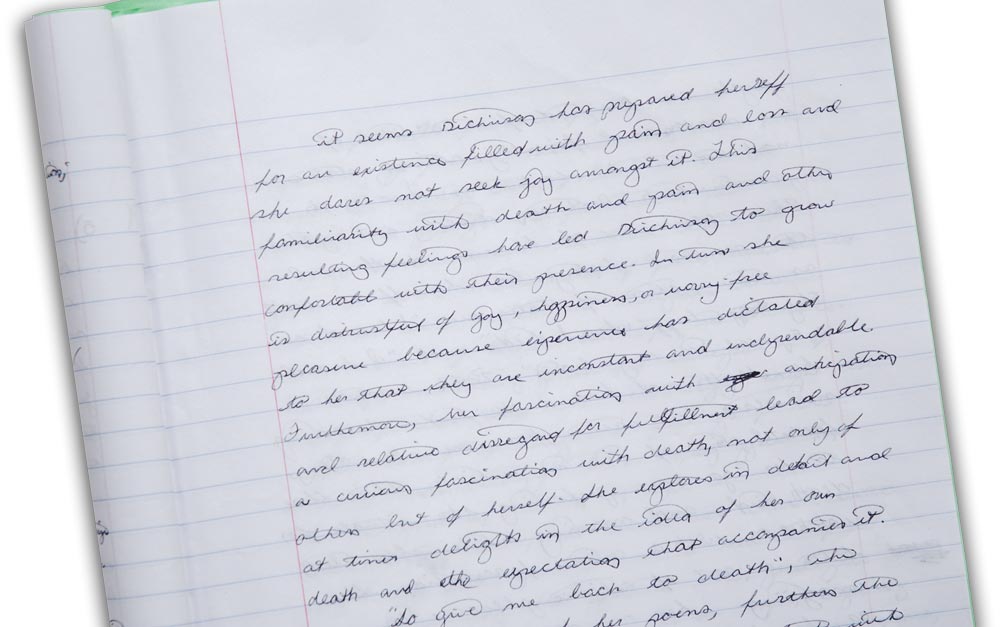 It seems Dickinson has prepared herself
for an existence filled with pain and loss and
she dares not seek joy amongst it. This
familiarity with death and pain and other
resulting feelings have led Dickinson to grow
confortable with their presence. In turn she
is distrustful of joy, happiness, or worry-free
pleasure because experience has dictated
to her that they are inconstant and undependable.
Furthermore, her fascination with anticipation
and relative disregard for fulfillment lead to
a curious fascination with death, not only of
others but of herself. She explores in detail and
at times delights in the idea of her own
death and the expectation that accompanies it.
"So give me back to death", the
her poems, furthers the
with